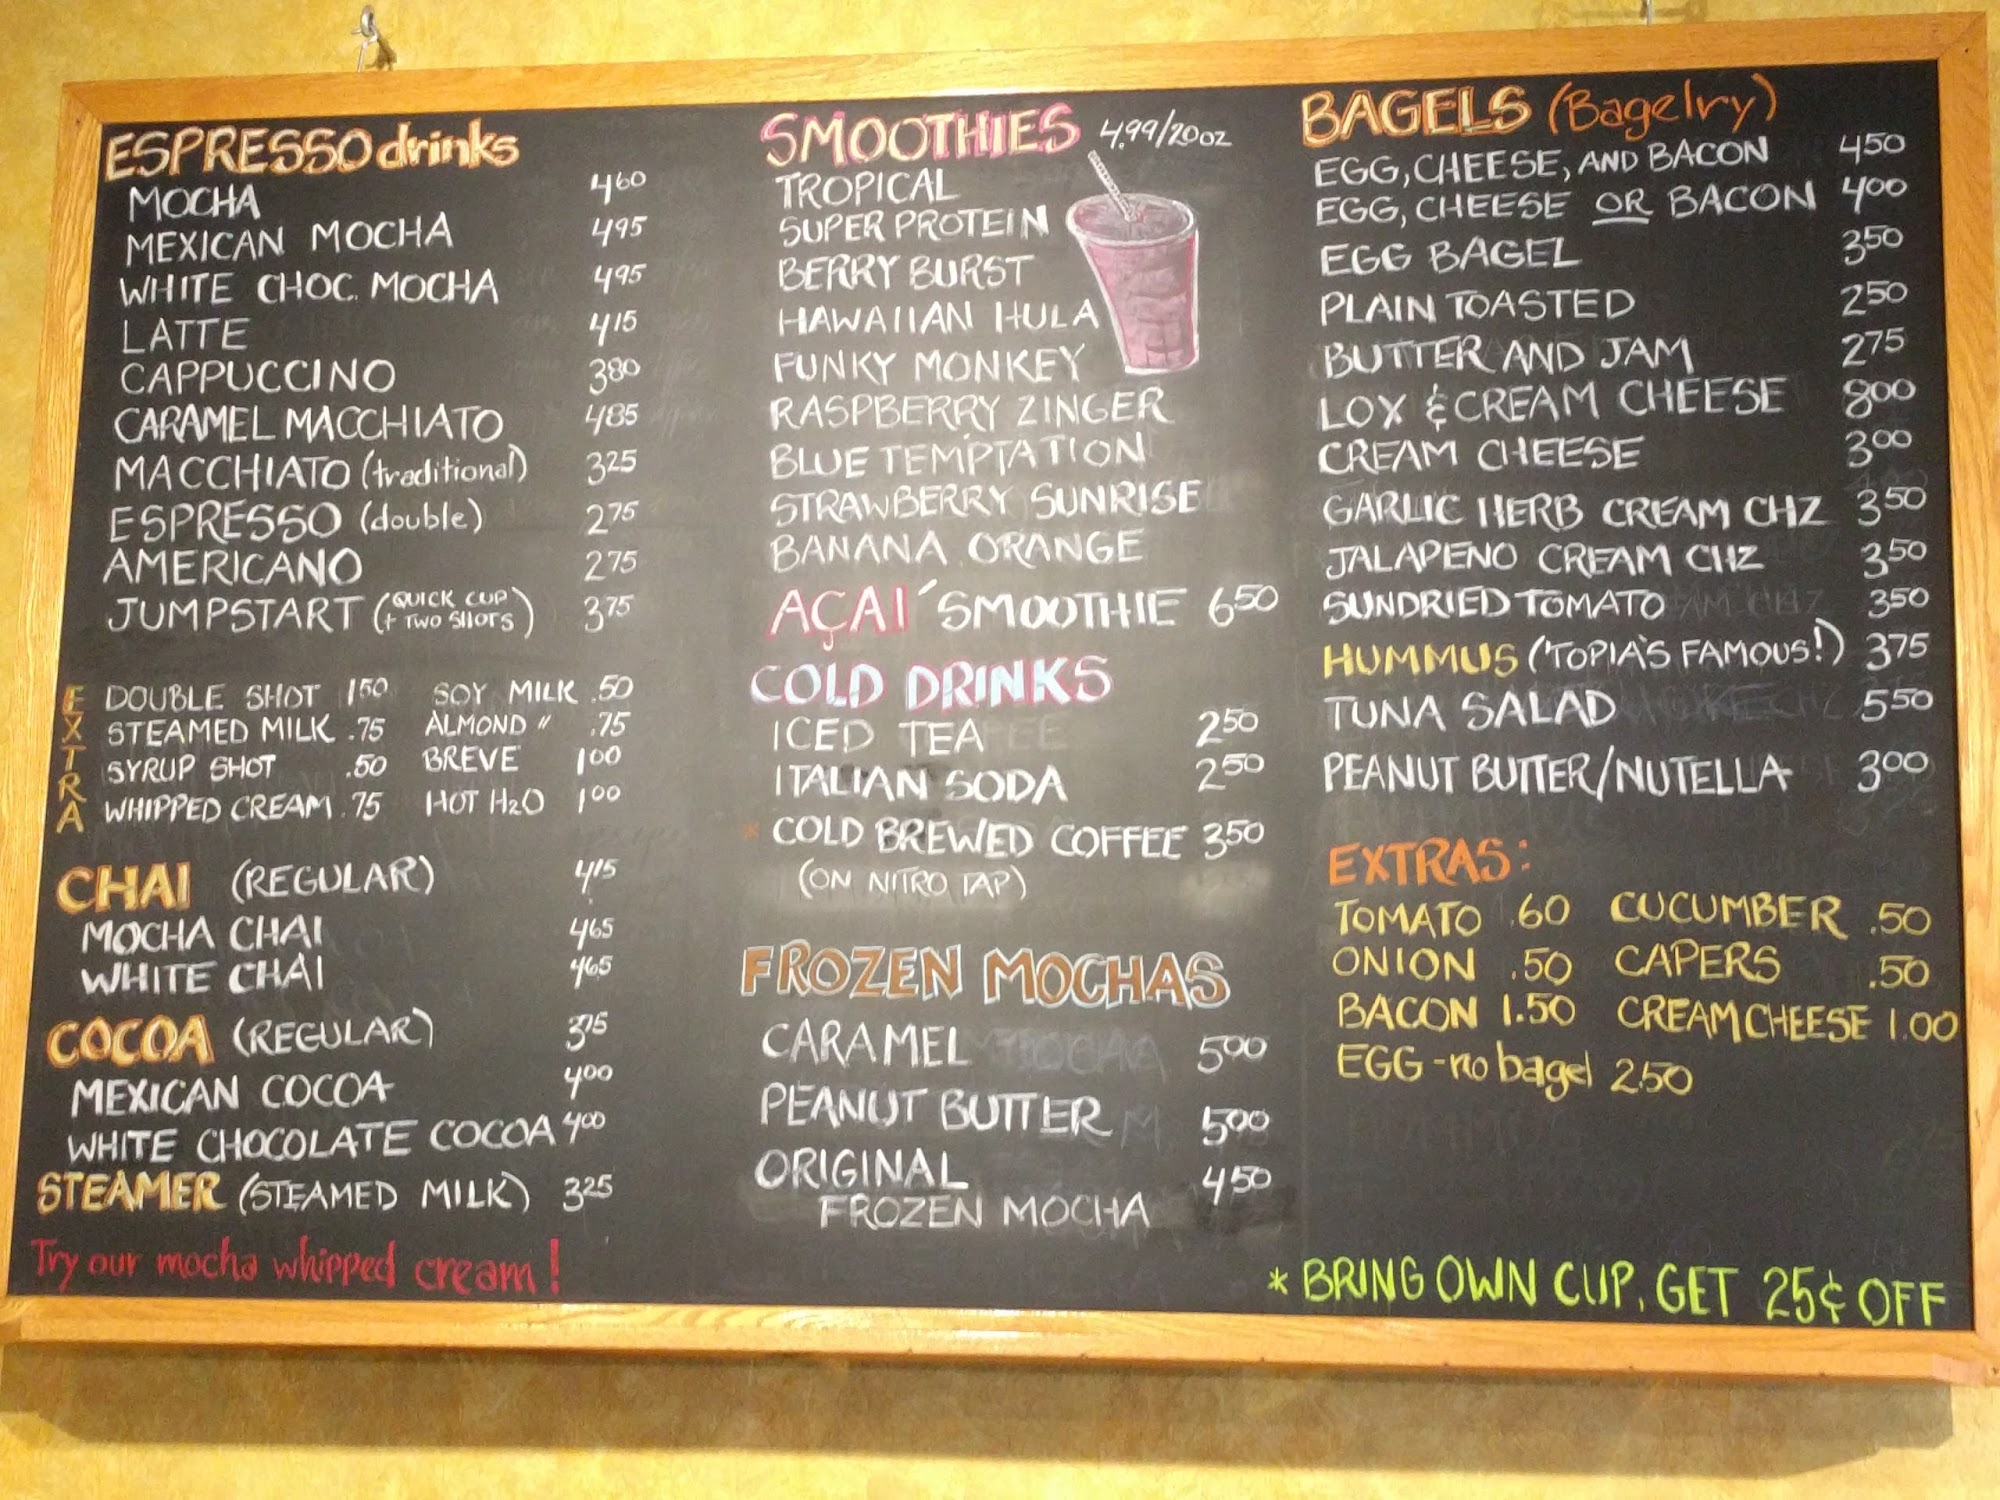 ESPRESSO drinks
MOCHA 4.60
MEXICAN MOCHA 4.95
WHITE CHOC. MOCHA 4.95
LATTE 4.15
CAPPUCCINO 3.80
CARAMEL MACCHIATO 4.85
MACCHIATO (traditional) 3.25
ESPRESSO (double) 2.75
AMERICANO 2.75
JUMPSTART (QUICK CUP + TWO SHOTS) 3.75
EXTRA
DOUBLE SHOT 1.50 SOY MILK .50
STEAMED MILK .75 ALMOND " .75
SYRUP SHOT .50 BREVE 1.00
WHIPPED CREAM .75 HOT H2O 1.00
CHAI (REGULAR) 4.15
MOCHA CHAI 4.65
WHITE CHAI 4.65
COCOA (REGULAR) 3.75
MEXICAN COCOA 4.00
WHITE CHOCOLATE COCOA 4.00
STEAMER (STEAMED MILK) 3.25
Try our mocha whipped cream!
SMOOTHIES 4.99/20oz
TROPICAL
SUPER PROTEIN
BERRY BURST
HAWAIIAN HULA
FUNKY MONKEY
RASPBERRY ZINGER
BLUE TEMPTATION
STRAWBERRY SUNRISE
BANANA ORANGE
AÇAI´ SMOOTHIE 6.50
COLD DRINKS
ICED TEA 2.50
ITALIAN SODA 2.50
* COLD BREWED COFFEE 3.50
(ON NITRO TAP)
FROZEN MOCHAS
CARAMEL 5.00
PEANUT BUTTER 5.00
ORIGINAL 4.50
FROZEN MOCHA
BAGELS (Bagelry)
EGG, CHEESE, AND BACON 4.50
EGG, CHEESE OR BACON 4.00
EGG BAGEL 3.50
PLAIN TOASTED 2.50
BUTTER AND JAM 2.75
LOX & CREAM CHEESE 8.00
CREAM CHEESE 3.00
GARLIC HERB CREAM CHZ 3.50
JALAPENO CREAM CHZ 3.50
SUNDRIED TOMATO 3.50
HUMMUS ('TOPIA'S FAMOUS!) 3.75
TUNA SALAD 5.50
PEANUT BUTTER/NUTELLA 3.00
EXTRAS:
TOMATO .60 CUCUMBER .50
ONION .50 CAPERS .50
BACON 1.50 CREAM CHEESE 1.00
EGG - no bagel 2.50
* BRING OWN CUP, GET 25¢ OFF